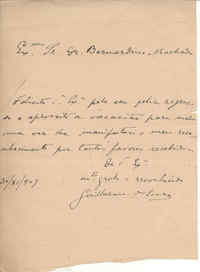 Exmo Sr Dr. Bernardino Machado
Felicito V. Exª pelo seu feliz regresso
e aproveito a occasião para mais
uma vez lhe manifestar o meu reco-
nhecimento por tantos favores recebidos.
De V. Exª
mtº grato e reconhecido
Guilherme de Souza